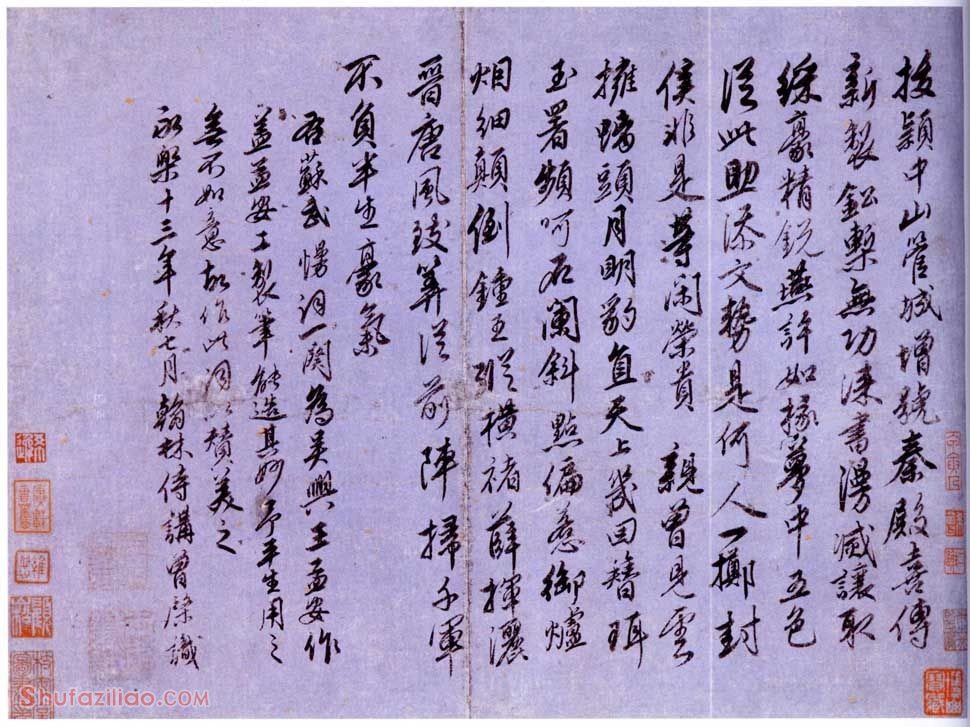 拔穎中山管城增號秦殿喜傳
新製鉛槧無功漆書漫滅讓取
綵豪精銳燕許如椽夢中五色
從此助添文勢是何人一擲封
侯非是等閑榮貴 親曾見雲
擁螭頭月明豹直天上幾回簪珥
玉署頻呵石闌斜點偏惹御爐
烟細顛倒鍾王縱橫褚薛揮灑
晉唐風致筭從前陣掃千軍
不負半生豪氣
右蘇武慢詞一闋為吳興王孟安作
蓋孟安工製筆能造其妙予平生用之
無不如意故作此詞以贊美之
永樂十三年秋七月翰林侍講曾棨識
Shufaziliao.com